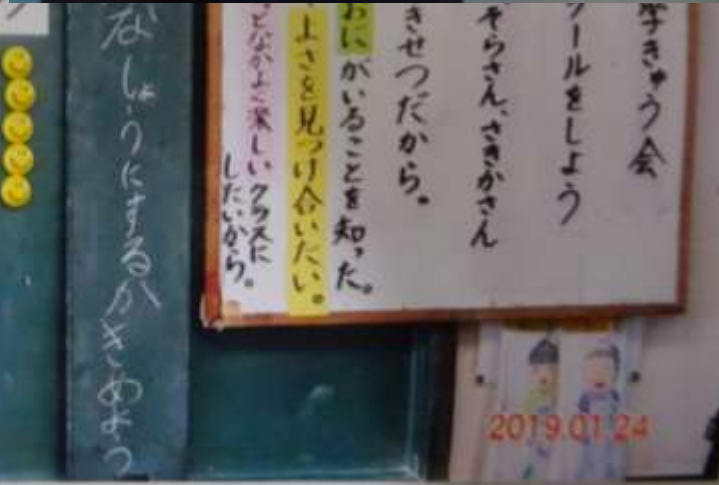 学きゅう会
ールをしよう
そらさん、さきかさん
きせつだから。
おにがいることを知った。
よさを見つけ合いたい。
となかよく楽しいクラスに
したいから。
なしょうにするかきめよう
2019.01.24